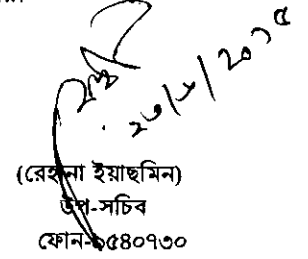 ২৩/৮/২০১৫
(রেহানা ইয়াছমিন)
উপ-সচিব
ফোন-৯৫৪০৭৩০